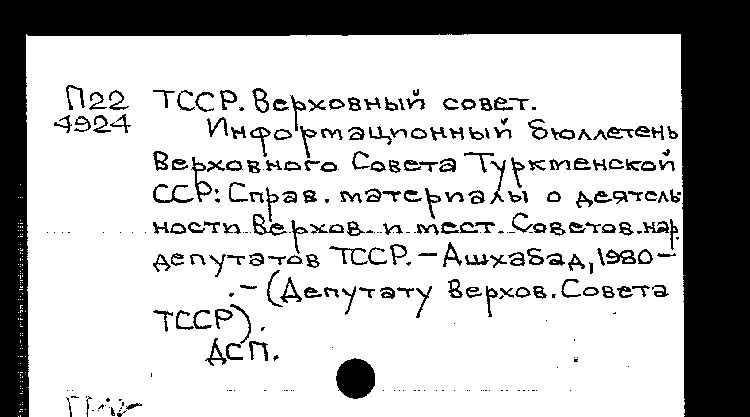 П22 ТССР. Верховный совет.
4924 Информационный бюллетень
Верховного Совета Туркменской
ССР: Справ. материалы о деятель
ности Верхов. и мест. Советов нар.
депутатов ТССР. – Ашхабад, 1980 –
. – (Депутату Верхов. Совета
ТССР).
ДСП.